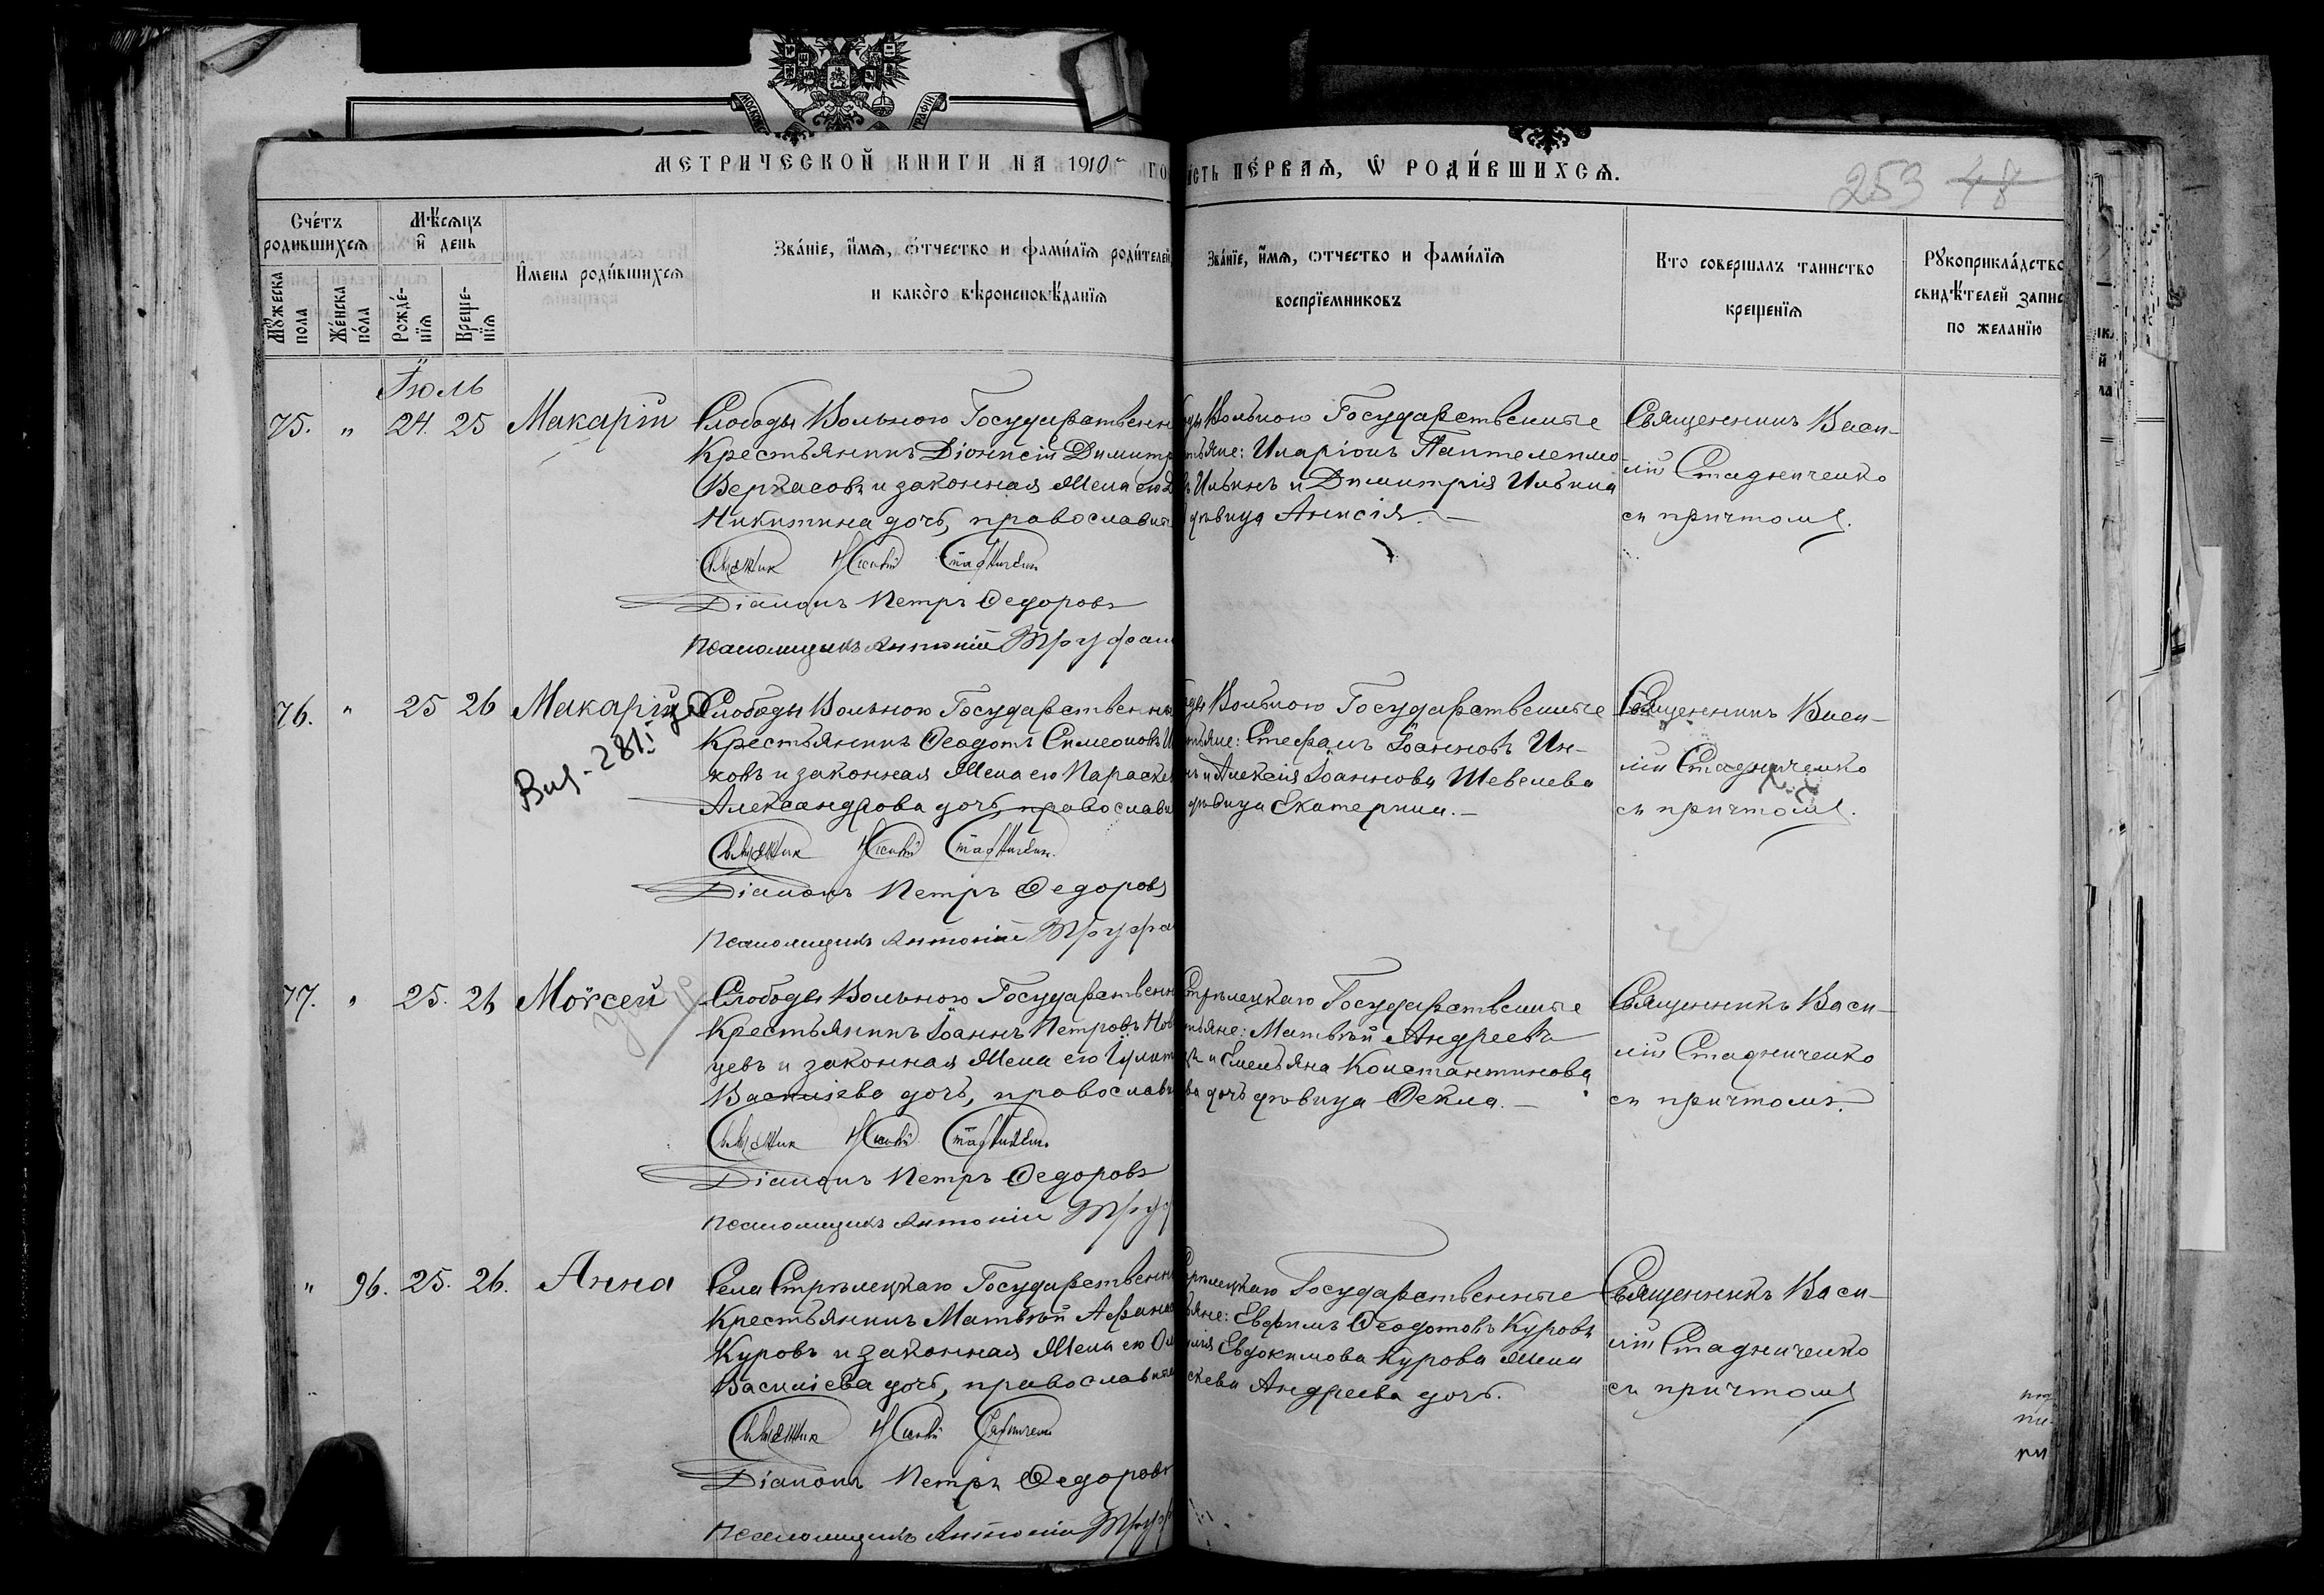 МЕТРИЧЕСКОЙ КНИГИ НА 1910 ГО
СТЬ ПЕ́РВАѦ, Ѡ РОДИ́ВШИХСѦ.
253 48
Сче́тъ родившихсѧ
Мѣ́сѧцъ и҆ день
Мꙋ́жеска пола
Же́нска по́ла
Рожде́-нїѧ
Креще-нїѧ
И҆мена роди́вшихсѧ
Зва́нїе, и҆́мѧ, ѻ҆́тчество и фами́лїѧ роди́телей,
и како́го вѣроисповѣ́данїѧ
Зва́нїе, и҆́мѧ, ѻтчество и фами́лїѧ
воспрїемниковъ
Кто совершалъ таинство
крещенїѧ
Рꙋкоприкла́дство
свидѣ́телей запис
по желанїю
Іюль
75. " 24. 25 Макарій
Слободы Вольною Государственн
Крестьянинъ Діонисій Димитр
и законная жена его
Никитина дочь, православн
Діаконъ Петръ Ѳедоровъ
Псаломщикъ Антоній Труфан
ды Вольною Государственные
тьяне: Иларіонъ Пантелеимо-
въ Ильинъ и Димитрія Ильина
дѣвица Анисія. —
Священникъ Васи-
лій Стадниченко
съ причтомъ.
76. " 25 26 Макарій
Вид. 281
Слободы Вольною Государственн
Крестьянинъ Ѳеодотъ Симеоновъ И
ковъ и законная жена его Параске
Александрова дочь, православн
Діаконъ Петръ Ѳедоровъ
Псаломщикъ Антоній Труфа
ды Вольною Государственные
тьяне: Стефанъ Іоанновъ Ин-
въ и Алексія Іоаннова Шевелева
дѣвица Екатерина. —
Священникъ Васи-
лій Стадниченко
съ причтомъ.
77. " 25. 26 Моѵсей
Слободы Вольною Государственн
Крестьянинъ Іоаннъ Петровъ Нов
цевъ и законная жена его Іулит
Василіева дочь, православн
Діаконъ Петръ Ѳедоровъ
Псаломщикъ Антоній Труф
Стрѣлецкаго Государственные
тьяне: Матвѣй Андреевъ
и Емельяна Константинова
ва дочь дѣвица Ѳекла. —
Священникъ Васи-
лій Стадниченко
съ причтомъ.
" 96. 25. 26. Анна
Села Стрѣлецкаго Государственн
Крестьянинъ Матвѣй Афана
Куровъ и законная жена его Ол
Василіева дочь, православн
Діаконъ Петръ Ѳедоровъ
Псаломщикъ Антоній Труф
Стрѣлецкаго Государственные
тьяне: Евфимъ Ѳеодотовъ Куровъ
Евдокимова Курова жена
скева Андреева дочь.
Священникъ Васи-
лій Стадниченко
съ причтомъ